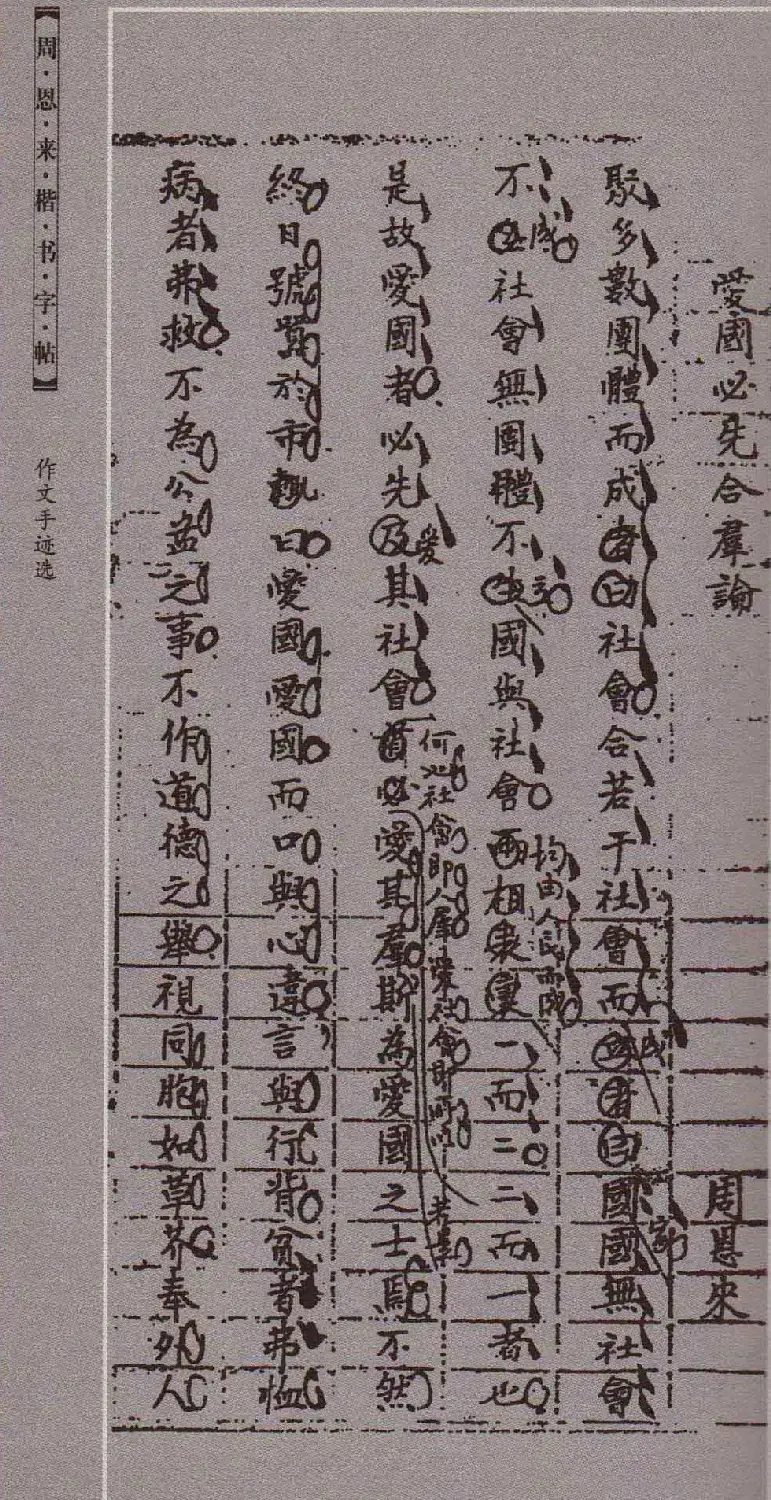 愛國必先合羣論
周恩來
聚多數團體而成者曰社會合若干社會而者曰國國無社會
成
家
不立社會無團體不生國與社會兩相表裏一而二二而一者也
成
立
均由人民而成
是故愛國者必先及其社會者必愛其羣斯為愛國之士焉不然
愛
何也社會即人羣集社會即所以
終日號詈於市輒曰愛國愛國而口與心違言與行背貧者弗恤
病者弗救不為公益之事不作道德之舉視同胞如草芥奉外人
【周·恩·来·楷·书·字·帖】
作文手迹选